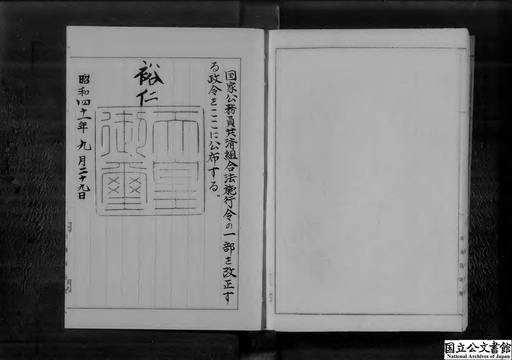 国家公務員共済組合法施行令の一部を改正す
る政令をここに公布する。
裕仁
天皇
御璽
昭和四十一年九月二十九日
国立公文書館
National Archives of Japan